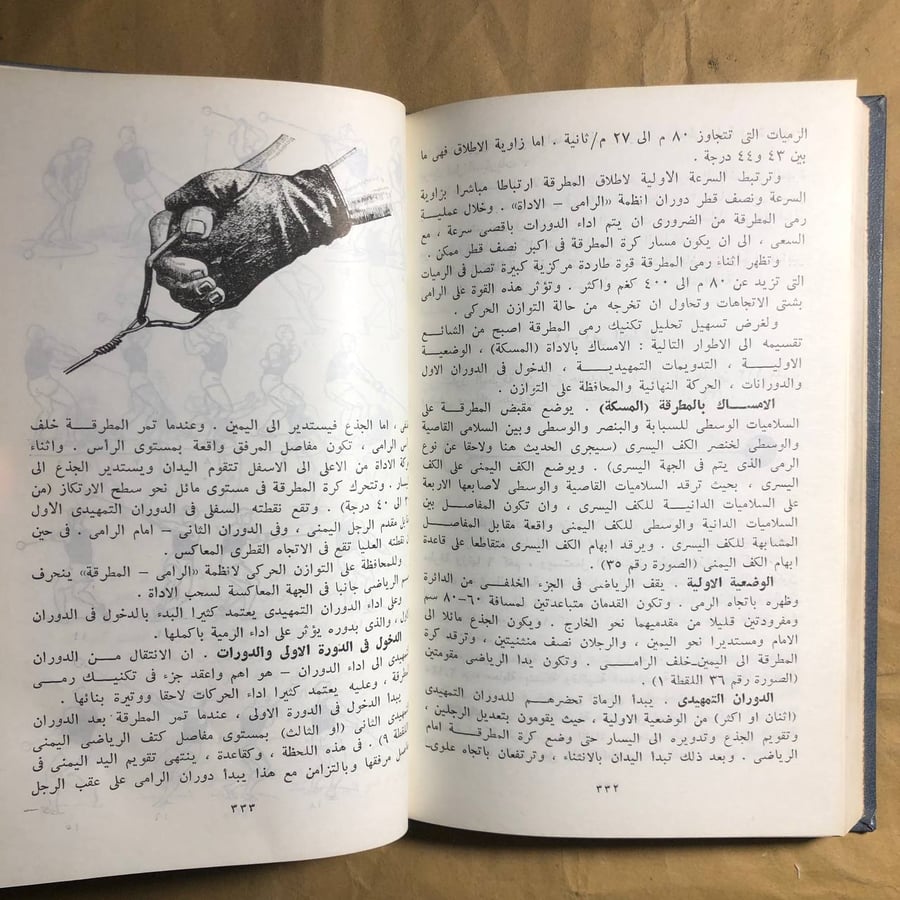 الرميات التى تتجاوز ٨٠ م الى ٢٧ م/ثانية . اما زاوية الاطلاق فهى ما
بين ٤٣ و٤٤ درجة .
وترتبط السرعة الاولية لاطلاق المطرقة ارتباطا مباشرا بزاوية
السرعة ونصف قطر دوران انظمة «الرامى – الاداة» . وخلال عمليـة
رمى المطرقة من الضرورى ان يتم اداء الدورات باقصى سرعة ، مع
السعى ، الى ان يكون مسار كرة المطرقة فى اكبر نصف قطر ممكن .
وتظهر اثناء رمى المطرقة قوة طاردة مركزية كبيرة تصل فى الرميات
التى تزيد عن ٨٠ م الى ٤٠٠ كغم واكثر . وتؤثر هذه القوة على الرامى
بشتى الاتجاهات وتحاول ان تخرجه من حالة التوازن الحركى .
ولغرض تسهيل تحليل تكنيك رمى المطرقة اصبح من الشائع
تقسيمه الى الاطوار التالية : الامساك بالاداة (المسكة) ، الوضعية
الاوليـة ، التدويمات التمهيديـة ، الدخول فى الدوران الاول
والدورانات ، الحركة النهائية والمحافظة على التوازن .
الامسـاك بالمطرقة (المسكة) . يوضع مقبض المطرقـة على
السلاميات الوسطى للسبابة والبنصر والوسطى وبين السلامى القاصية
والوسطى لخنصر الكف اليسرى (سيجرى الحديث هنا ولاحقا عن نوع
الرمى الذى يتم فى الجهة اليسرى) . ويوضع الكف اليمنى على الكف
اليسرى ، بحيث ترقد السلاميات القاصية والوسطى لاصابعها الاربعة
على السلاميات الدانيـة للكف اليسرى ، وان تكون المفاصل بين
السلاميات الدانية والوسطى للكف اليمنى واقعة مقابل المفاصـل
المشابهة للكف اليسرى . ويرقد ابهام الكف اليسرى متقاطعا على قاعدة
ابهام الكف اليمنى (الصورة رقم ٣٥) .
الوضعية الاولية . يقف الرياضى فى الجزء الخلفـى من الدائرة
وظهره باتجاه الرمى . وتكون القدمان متباعدتين لمسافة ٦٠–٨٠ سم
ومفرودتين قليلا من مقدميهما نحو الخارج . ويكون الجذع مائلا الى
الامام ومستديرا نحو اليمين ، والرجلان نصف منثنيتين ، وترقد كرة
المطرقة الى اليمين–خلف الرامـى . وتكون يدا الرياضى مقومتين
(الصورة رقم ٣٦ اللقطة ١) .
الدوران التمهيدى . يبدأ الرماة تحضرهـم للدوران التمهيدى
(اثنتان او اكثر) من الوضعية الاولية ، حيث يقومون بتعديل الرجلين ،
وتقويم الجذع وتدويره الى اليسار حتى وضع كرة المطرقـة امام
الرياضى . وبعد ذلك تبدأ اليدان بالانثناء ، وترتفعان باتجاه علوى–
٣٣٢
، اما الجذع فيستدير الى اليمين . وعندما تمر المطرقـة خلف
الرامى ، تكون مفاصل المرفق واقعة بمستوى الرأس . واثناء
الاداة من الاعلى الى الاسفل تتقوم اليدان ويستدير الجذع الى
. وتتحرك كرة المطرقة فى مستوى مائل نحو سطح الارتكاز (من
الى ٤٠ درجة) . وتقع نقطته السفلى فى الدوران التمهيدى الأول
مقدم الرجل اليمنى ، وفى الدوران الثانى – امام الرامى . فى حين
نقطته العليا تقع فى الاتجاه القطرى المعاكس .
وللمحافظة على التوازن الحركى لانظمة «الرامى – المطرقة» ينحرف
الرياضى جانبا فى الجهة المعاكسة لسحب الاداة .
وعلى اداء الدوران التمهيدى يعتمد كثيرا البدء بالدخول فى الدوران
، والذى بدوره يؤثر على اداء الرمية باكملها .
الدخول فى الدورة الاولى والدورات . ان الانتقال مـن الدوران
الى اداء الدوران – هو اهم واعقد جزء فى تكنيـك رمـى
، وعليه يعتمد كثيرا اداء الحركات لاحقا ووتيرة بنائها .
يبدا الدخول فى الدورة الاولى ، عندما تمر المطرقة بعد الدوران
الثانى (او الثالث) بمستوى مفاصل كتف الرياضى اليمنى
٩) . فى هذه اللحظة ، وكقاعدة ، ينتهى تقويم اليد اليمنى فى
مرفقها وبالتزامن مع هذا يبدا دوران الرامى على عقب الرجل
٣٣٣